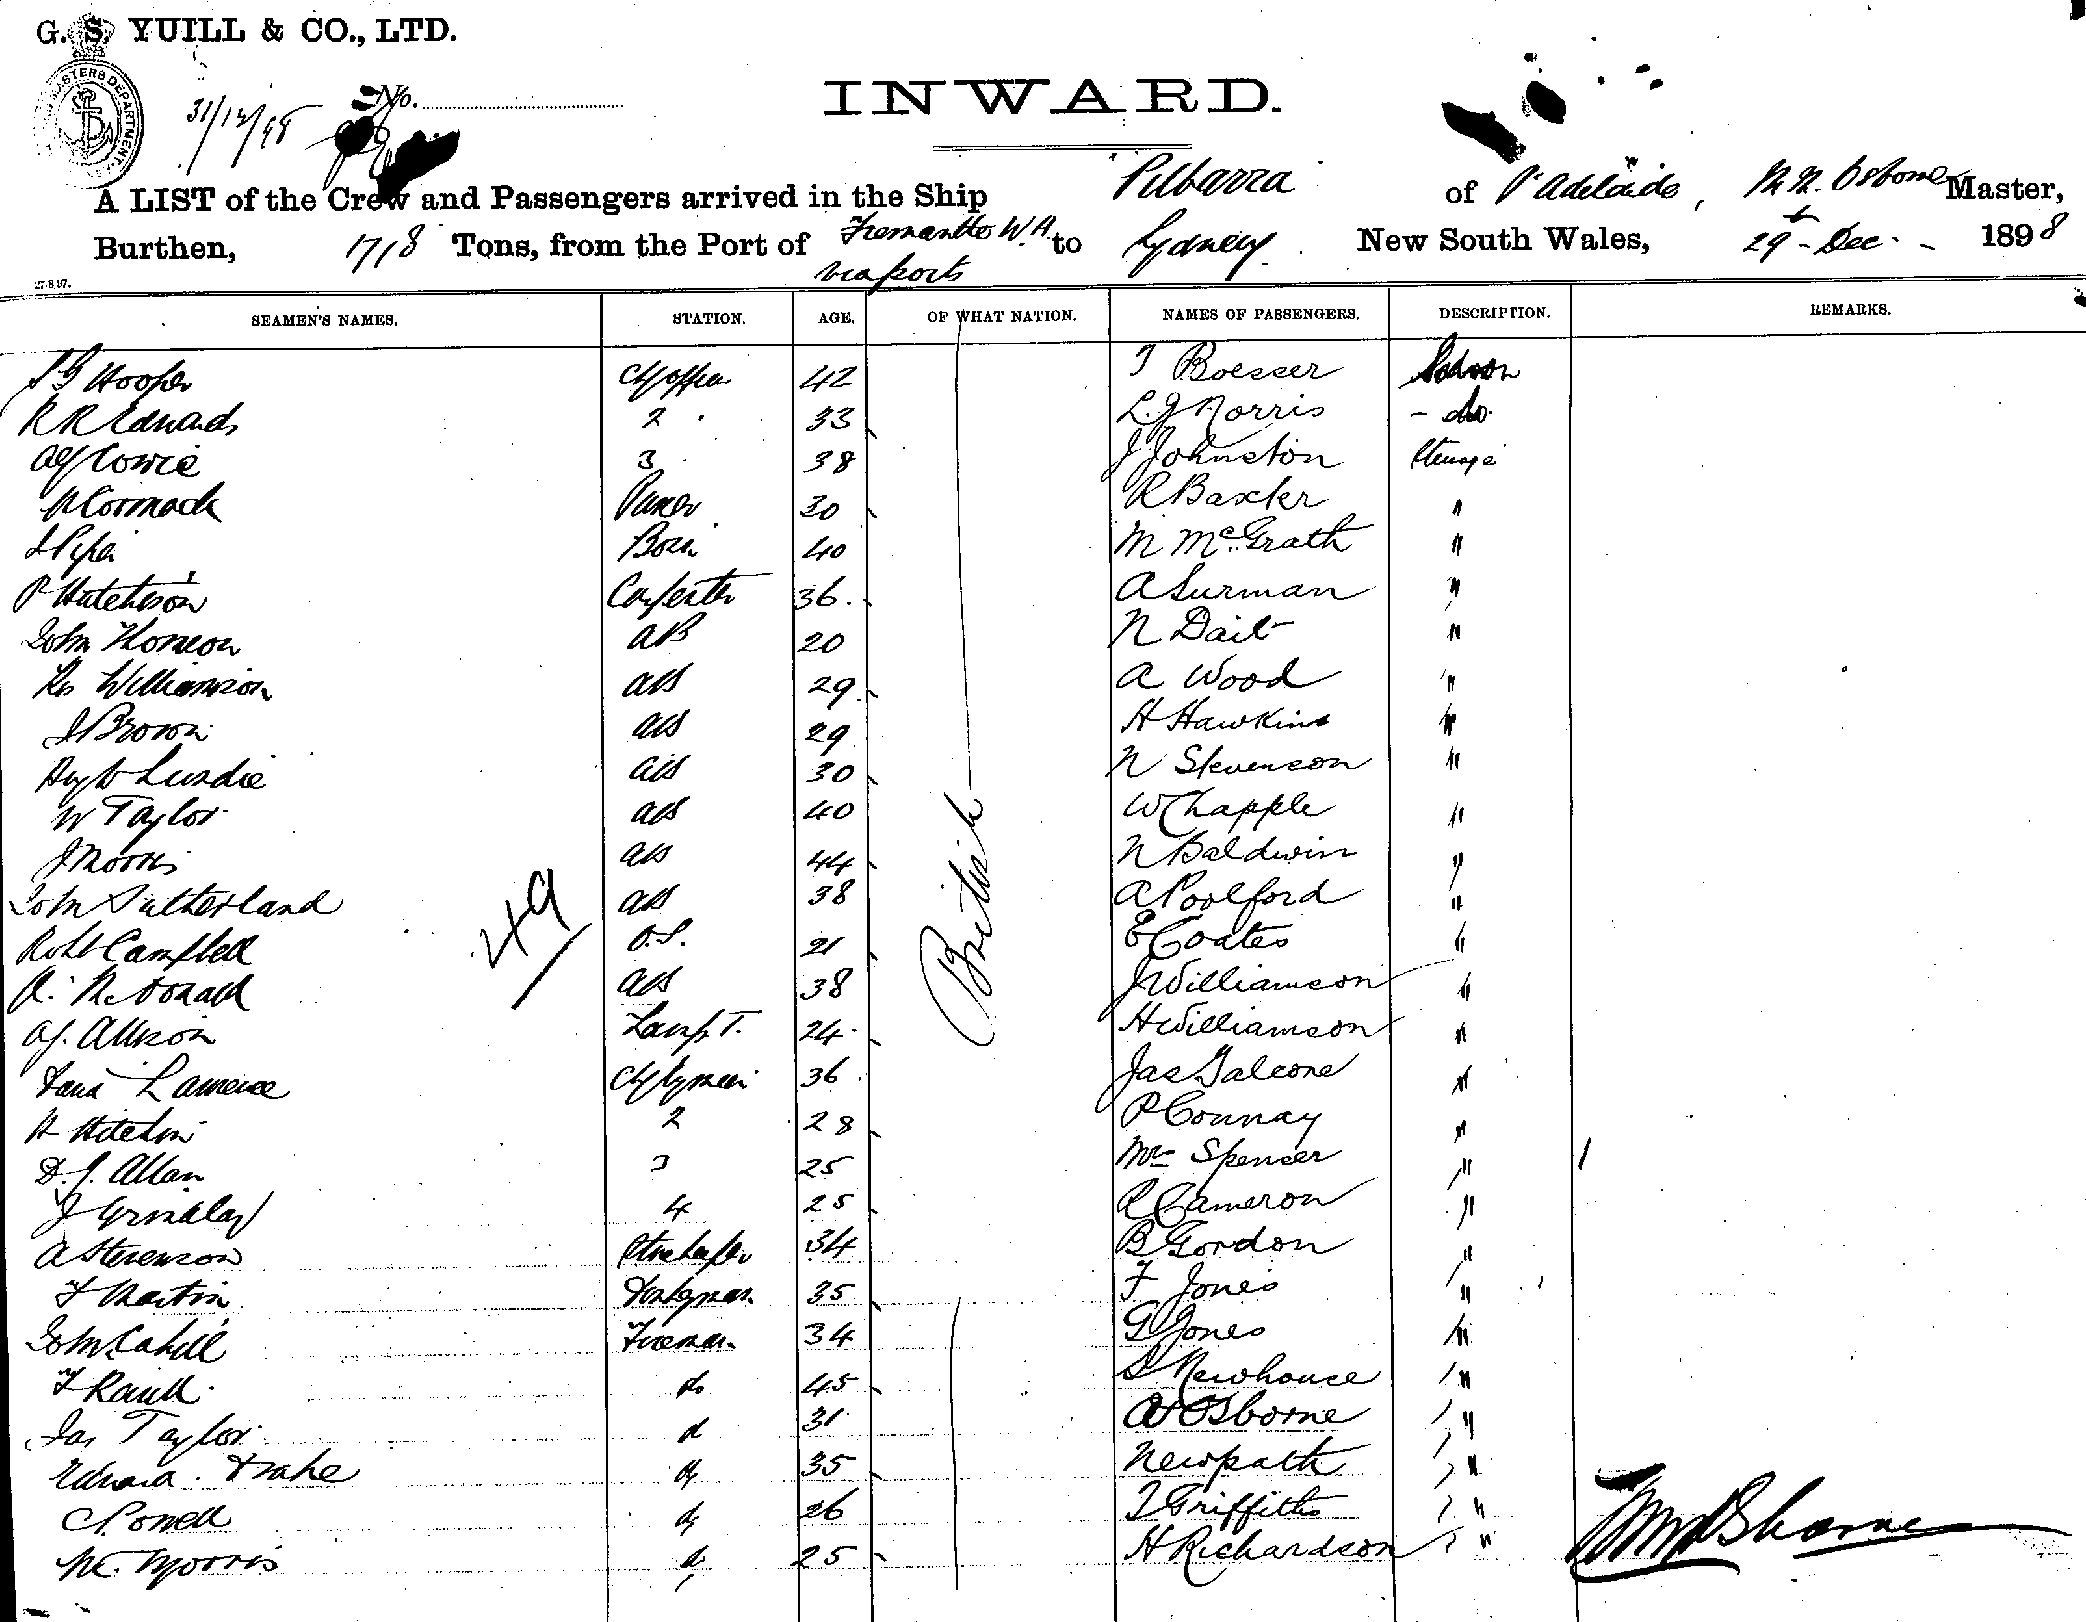 G. S. YUILL & CO., LTD.
31/12/98 No.
INWARD.
A LIST of the Crew and Passengers arrived in the Ship Pilbarra of Pt Adelaide, Master,
Burthen, 1718 Tons, from the Port of Fremantle W.A. via ports to Sydney New South Wales, 29th Dec. 1898
27.8.97.
SEAMEN'S NAMES. STATION. AGE. OF WHAT NATION. NAMES OF PASSENGERS. DESCRIPTION. REMARKS.
Hooper 42 Boesser Saloon
R R Edwards 2 33 L. J Norris - do.
Cowie 3 38 J Johnston
McCormack 30 R Baxter "
J Piper 40 M McGrath "
P Hutcheson Carpenter 36 A Surman "
John Thomson AB 20 N Dait "
Williamson AB 29 A Wood "
J Brown AB 29 H Hawkins "
Lundie AB 30 N Stevenson "
W Taylor AB 40 W Chapple "
J Morris AB 44 N Baldwin "
John Sutherland AB 38 A Poolford "
49
British
Robt Campbell O.S. 21 E Coates "
McDonald AB 38 J Williamson "
Allison Lamp T. 24 H Williamson "
Lawrence 36 Jas "
2 28 P Connay "
D. J. Allan 3 25 Mrs Spenser "
J Grindlay 4 25 Cameron "
A Stevenson 34 B Gordon "
F Martin 35 F Jones "
John Cahill Fireman 34 G Jones "
do 45 S Newhouse "
Jas Taylor d 31 Osborne "
Edward Drake 35 Newpath "
C Powell 26 T Griffiths "
Morris 25 H Richardson "